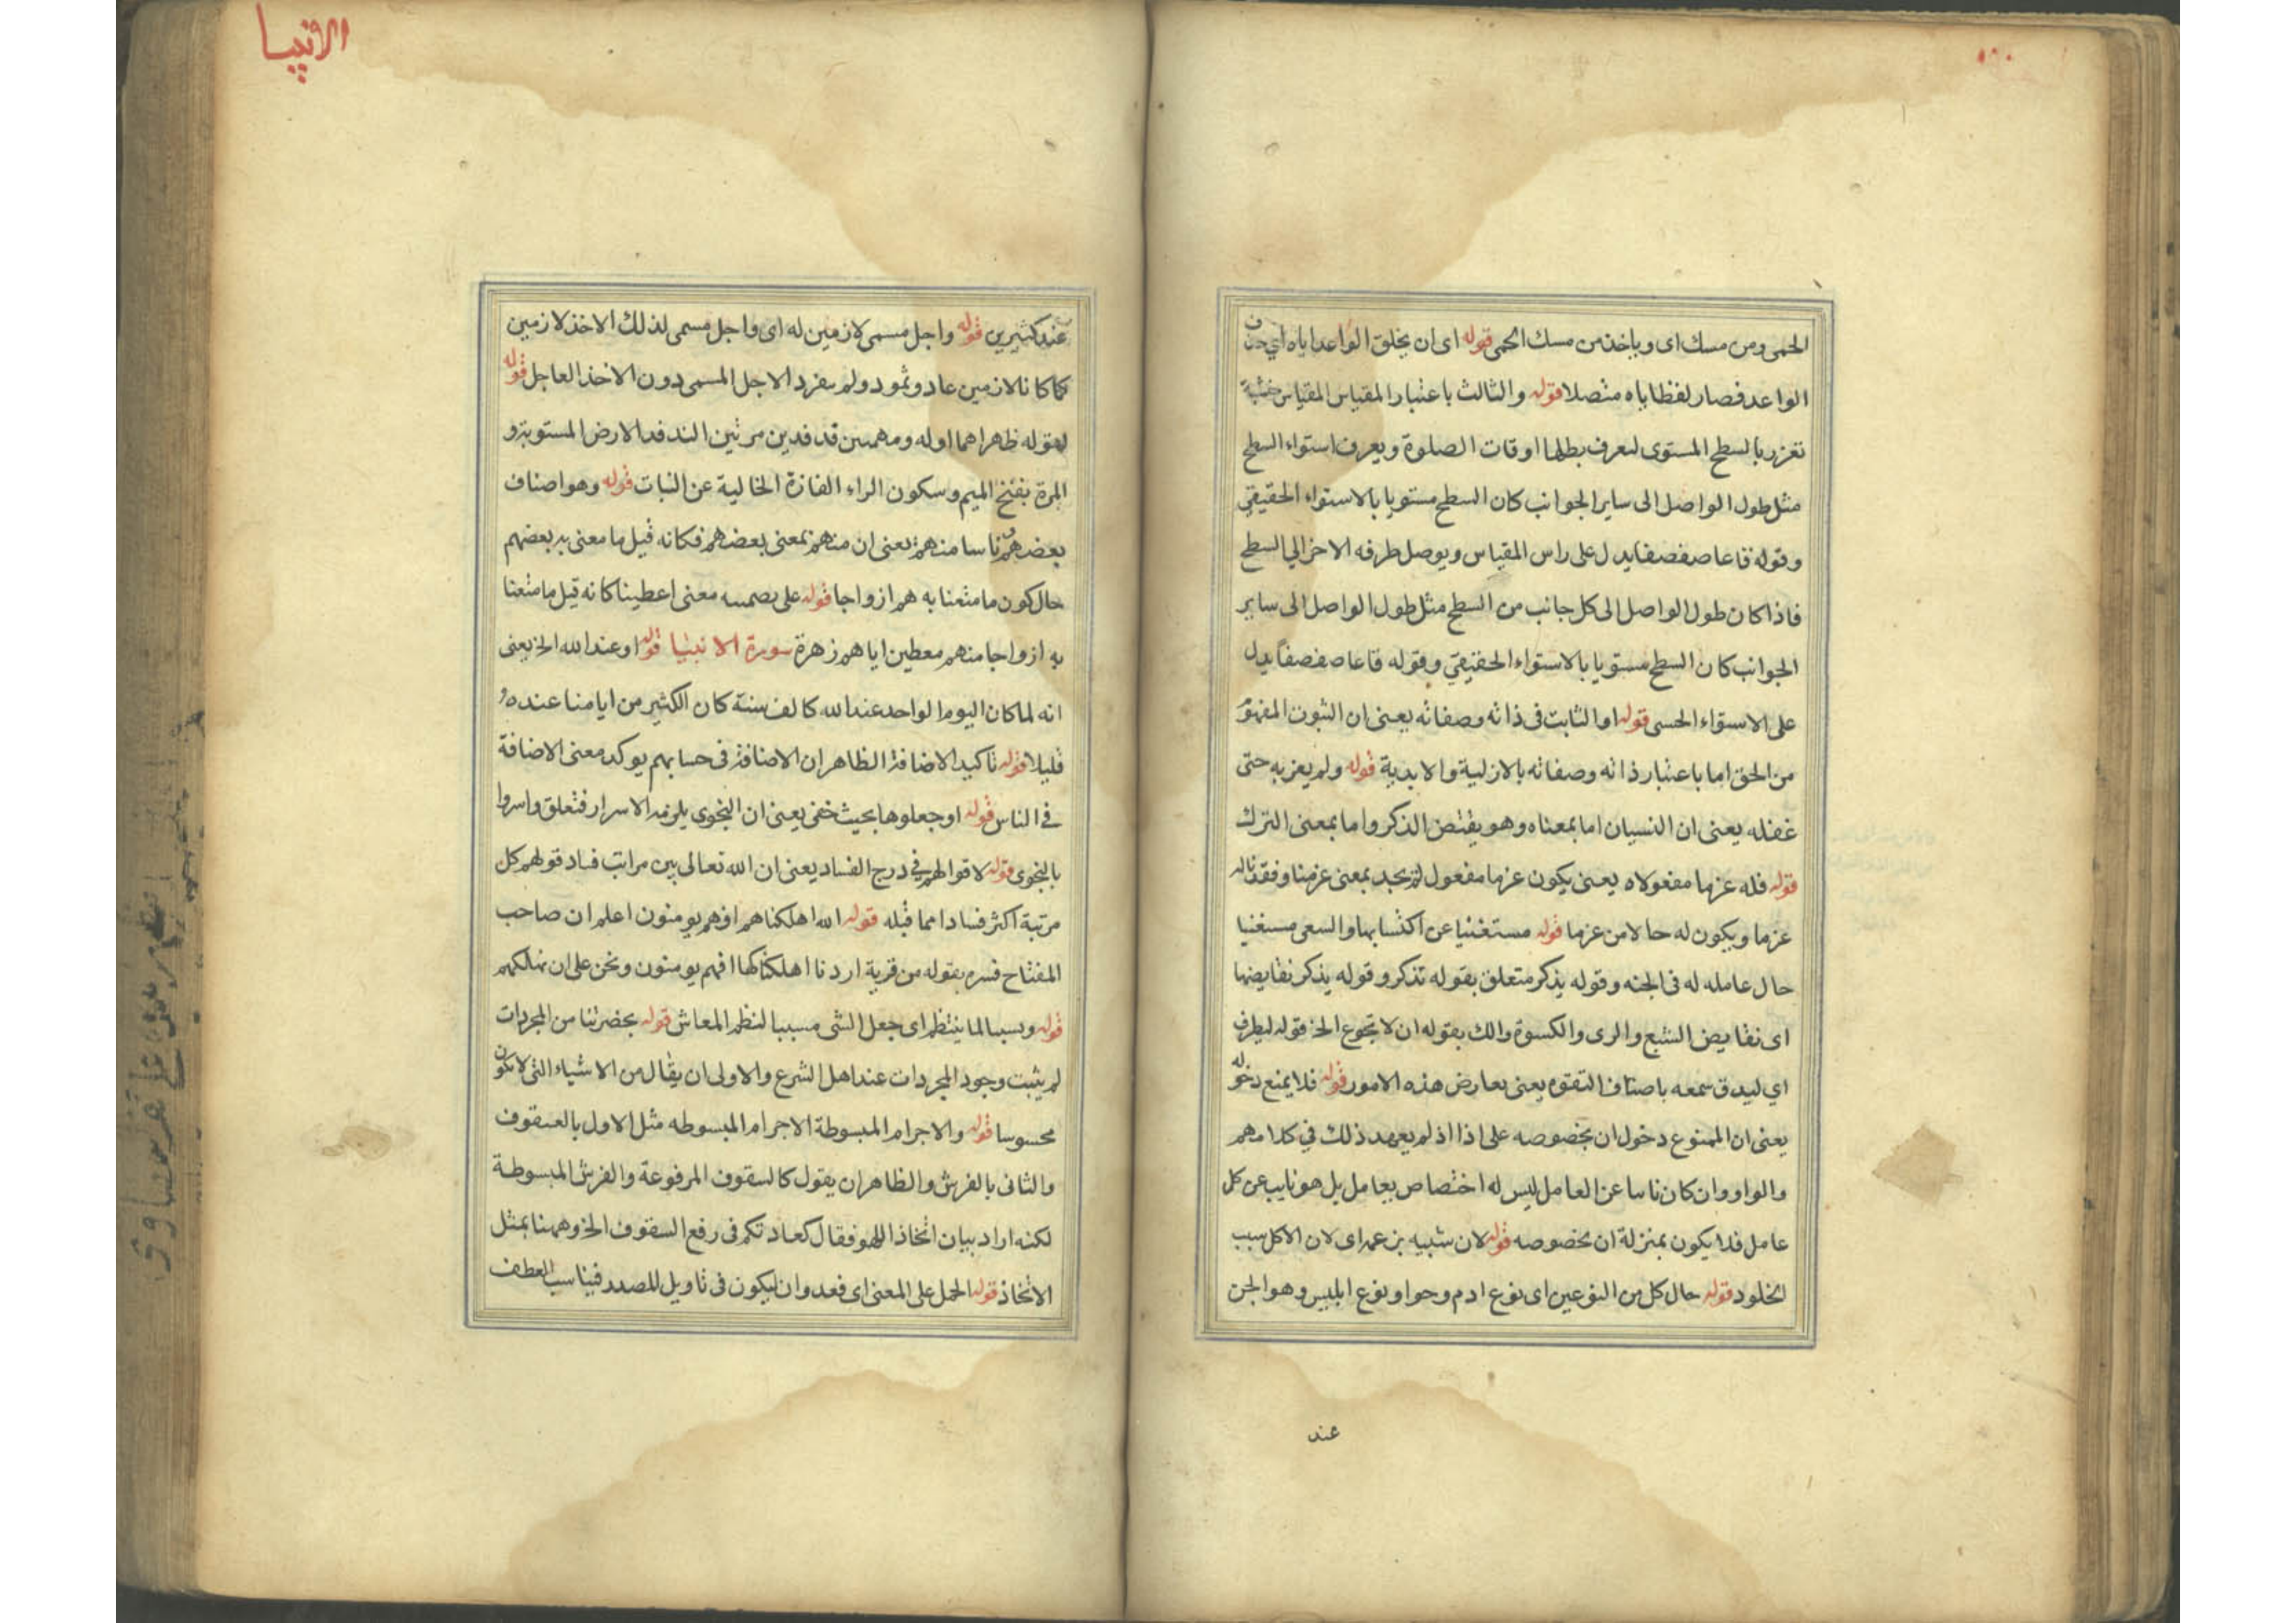 ١٨٠
الحمى ومن مسك اى وياخذ من مسك الحمى قوله اى ان يخلق الواعد اياه اي
الواعد فصار لفظ اياه متصلا قوله والثالث باعتبار المقياس المقياس خشبة
تغزر بالسطح المستوى لتعرف بظلها اوقات الصلوة ويعرف استواء السطح
مثل طول الواصل الى ساير الجوانب كان السطح مستويا بالاستواء الحقيقي
وقوله قاعا صفصفا يدل على راس المقياس ويوصل طرفه الاخر الي السطح
فاذا كان طول الواصل الى كل جانب من السطح مثل طول الواصل الى ساير
الجوانب كان السطح مستويا بالاستواء الحقيقي وقوله قاعا صفصفاً يدل
على الاستواء الحسى قوله او الثابت فى ذاته وصفاته يعنى ان الثبوت المفهوم
من الحق اما باعتبار ذاته وصفاته بالازلية والابدية قوله ولم يعز به حتى
غفله يعنى ان النسيان اما بمعناه وهو يقتض الذكر واما بمعنى الترك
قوله فله عزما مفعولاه يعنى يكون عزما مفعول لم نجد بمعنى عزمنا وفقدنا له
عزما ويكون له حالا من عزما قوله مستغنيا عن اكتسابها والسعى مستغنيا
حال عامله له فى الجنه وقوله يذكر متعلق بقوله تذكر وقوله يذكر نقايضها
اى نقايض الشبع والرى والكسوة والك بقوله ان لا تجوع الخ قوله ليطرف
اي ليدق سمعه باصناف التقوه يعنى بعارض هذه الامور قوله فلا يمنع دخوله
يعنى ان الممنوع دخول ان بخصوصه على اذا اذ لم يعهد ذلك في كلامهم
والواو وان كان نابا عن العامل ليس له اختصاص بعامل بل هو نايب عن كل
عامل فلا يكون بمنزلة ان بخصوصه قوله لان شبيه بن عمد اى لان الاكل سبب
الخلود قوله حال كل من النوعين اى نوع ادم وحوا ونوع ابليس وهو الجن
عند
الانبيا
عند كثيرين قوله واجل مسمى لازمين له اى واجل مسمى لذلك الاخذ لازمين
كما كانا لازمين عاد وثمود ولم ينفرد الاجل المسمى دون الاخذ العاجل قوله
لقوله ظهراهما اوله ومهمين قدفدين مرتين الفدفد الارض المستوية و
المرة بفتح الميم وسكون الراء الفازة الخالية عن النبات قوله وهو اصناف
بعضهم ناسا منهم يعنى ان منهم بمعنى بعضهم فكانه قيل ما معنى به بعضهم
حال كون ما متعنا به هم ازواجا قوله على تضمينه معنى اعطينا كانه قيل ما متعنا
به ازواجا منهم معطين اياهم زهرة سورة الانبيا قوله او عند الله الخ يعنى
انه لما كان اليوم الواحد عند الله كالف سنة كان الكثير من ايامنا عنده
قليلا قوله تاكيد الاضافة الظاهر ان الاضافة فى حسابهم يوكد معنى الاضافة
في الناس قوله او جعلوها بحيث خفى يعنى ان النجوي يلزمه الاسرار فتعلق واسروا
بالنجوى قوله لاقوالهم في درج الفساد يعنى ان الله تعالى بين مراتب فساد قولهم كل
مرتبة اكثر فسادا مما قبله قوله الله اهلكناهم افهم يومنون اعلم ان صاحب
المفتاح فسره بقوله من قرية اردنا اهلكناها افهم يومنون ونحن على ان نهلكهم
قوله وبسبا لما ينتظم اى جعل الشى مسببا لنظم المعاش قوله بحضرتنا من المجردات
لم يثبت وجود المجردات عند اهل الشرع والاولى ان يقال من الاشياء التى لا تكون
محسوسا قوله والاجرام المبسوطة الاجرام المبسوطه مثل الاول بالسقوف
والثانى بالفرش والظاهر ان يقول كالسقوف المرفوعة والفرش المبسوطة
لكنه اراد بيان اتخاذ اللهو فقال كعادتكم فى رفع السقوف الخ وههنا بمثل
الاتخاذ قوله الحمل على المعنى اى فعد وان ليكون فى تاويل للمصدر فيناسب العطف